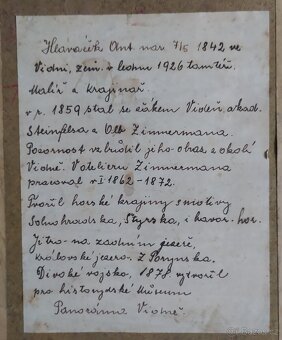 Hlavaček Ant. nar. 7/5 1842 ve
Vídni, zem. v lednu 1926 tamtéž.
Malíř a krajinář.
v r. 1859 stal se žákem Vídeň. akad.
Steinfelsa a Zimmermana.
Pozornost vzbudil jeho obraz, a okolí
Vídně. V atelieru Zimmermana
pracoval v l 1862-1872.
Tvořil horské krajiny s motivy
Solnohradska, Štyrska, i bavor. hor.
Jitro na zadním jezeře,
Královské jezero. Z Porýnska.
Divoké vojsko, 1878 vytvořil
pro historické Museum
Panoráma Vídně.